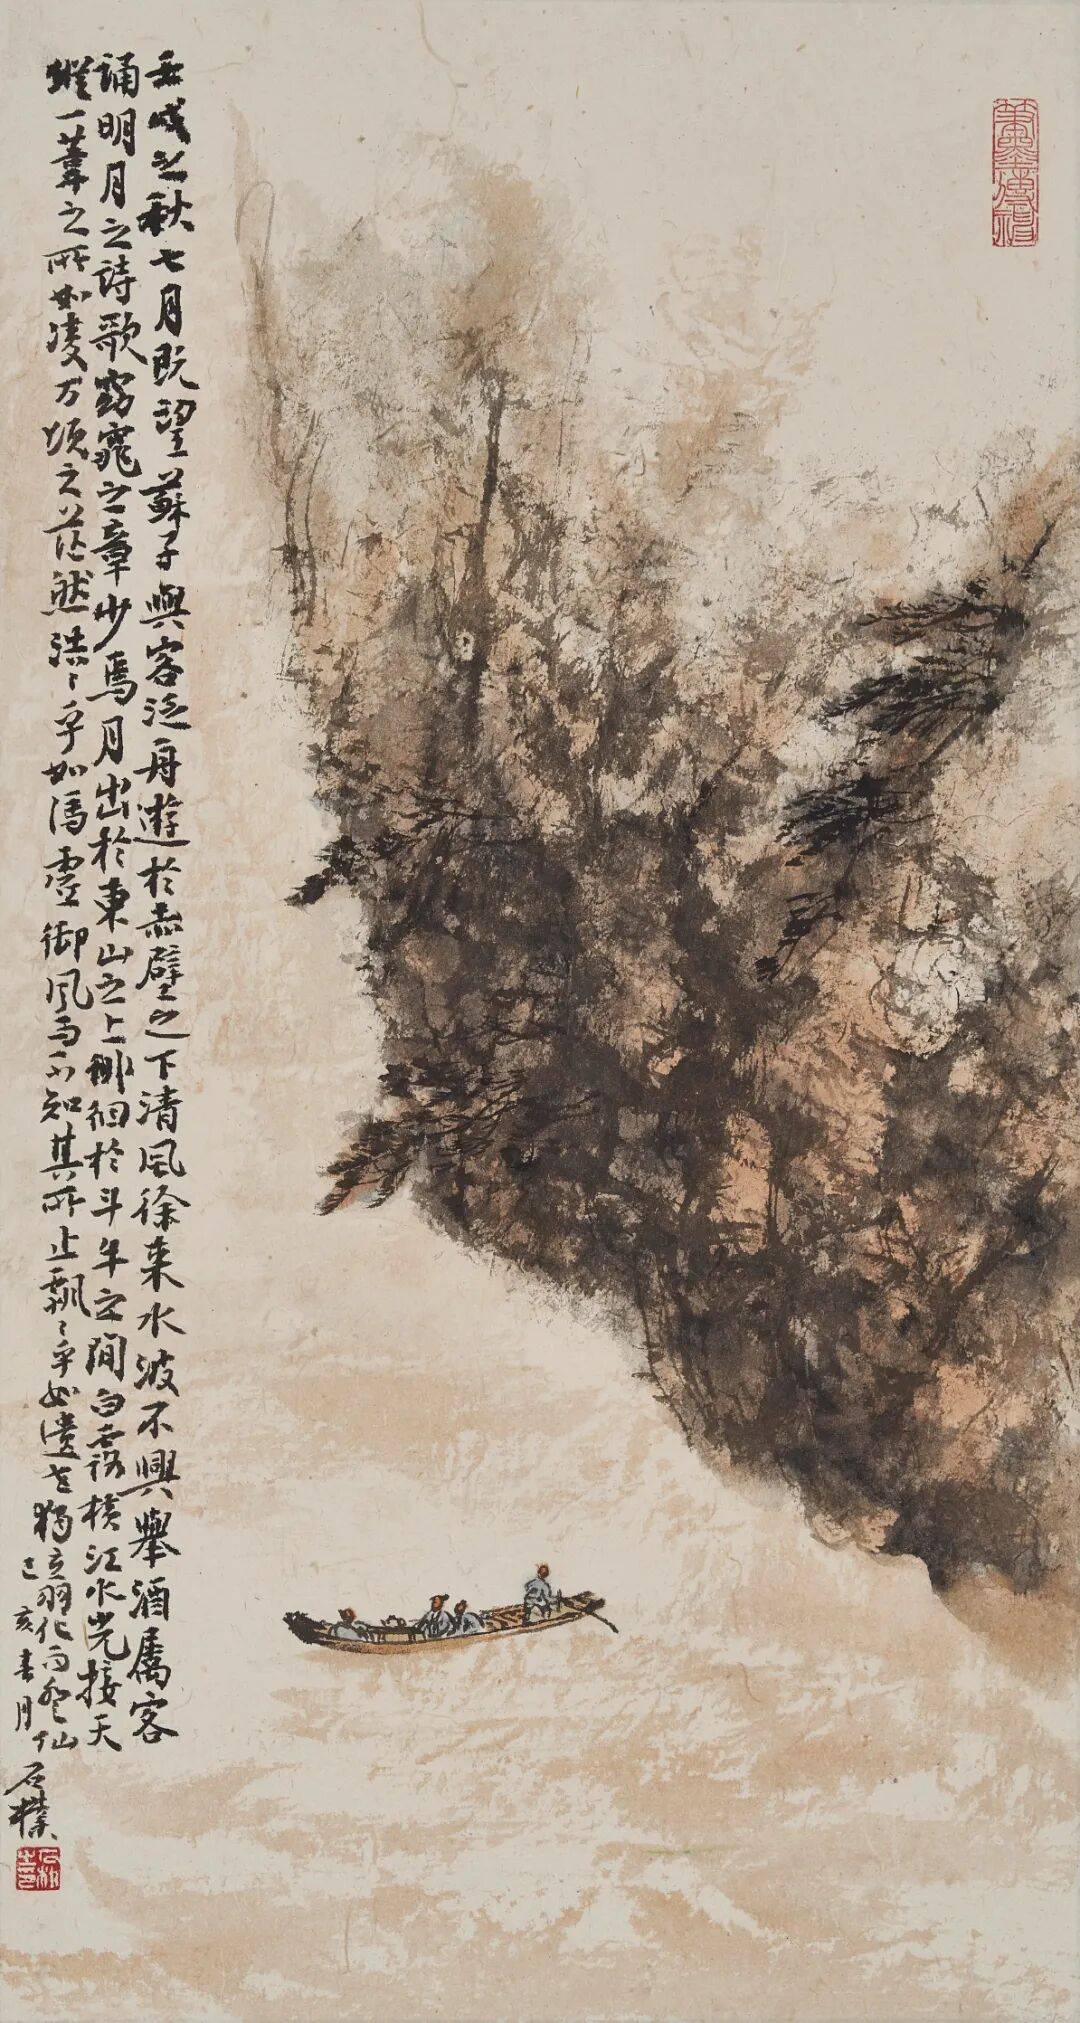 筆墨傳神
壬戌之秋七月既望蘇子與客泛舟遊於赤壁之下清風徐来水波不興舉酒屬客
誦明月之詩歌窈窕之章少焉月出於東山之上徘徊於斗牛之間白露橫江水光接天
縱一葦之所如凌万頃之茫然浩〻乎如馮虛御風而不知其所止飄〻乎如遺世獨立羽化而登仙
己亥春月
石樸